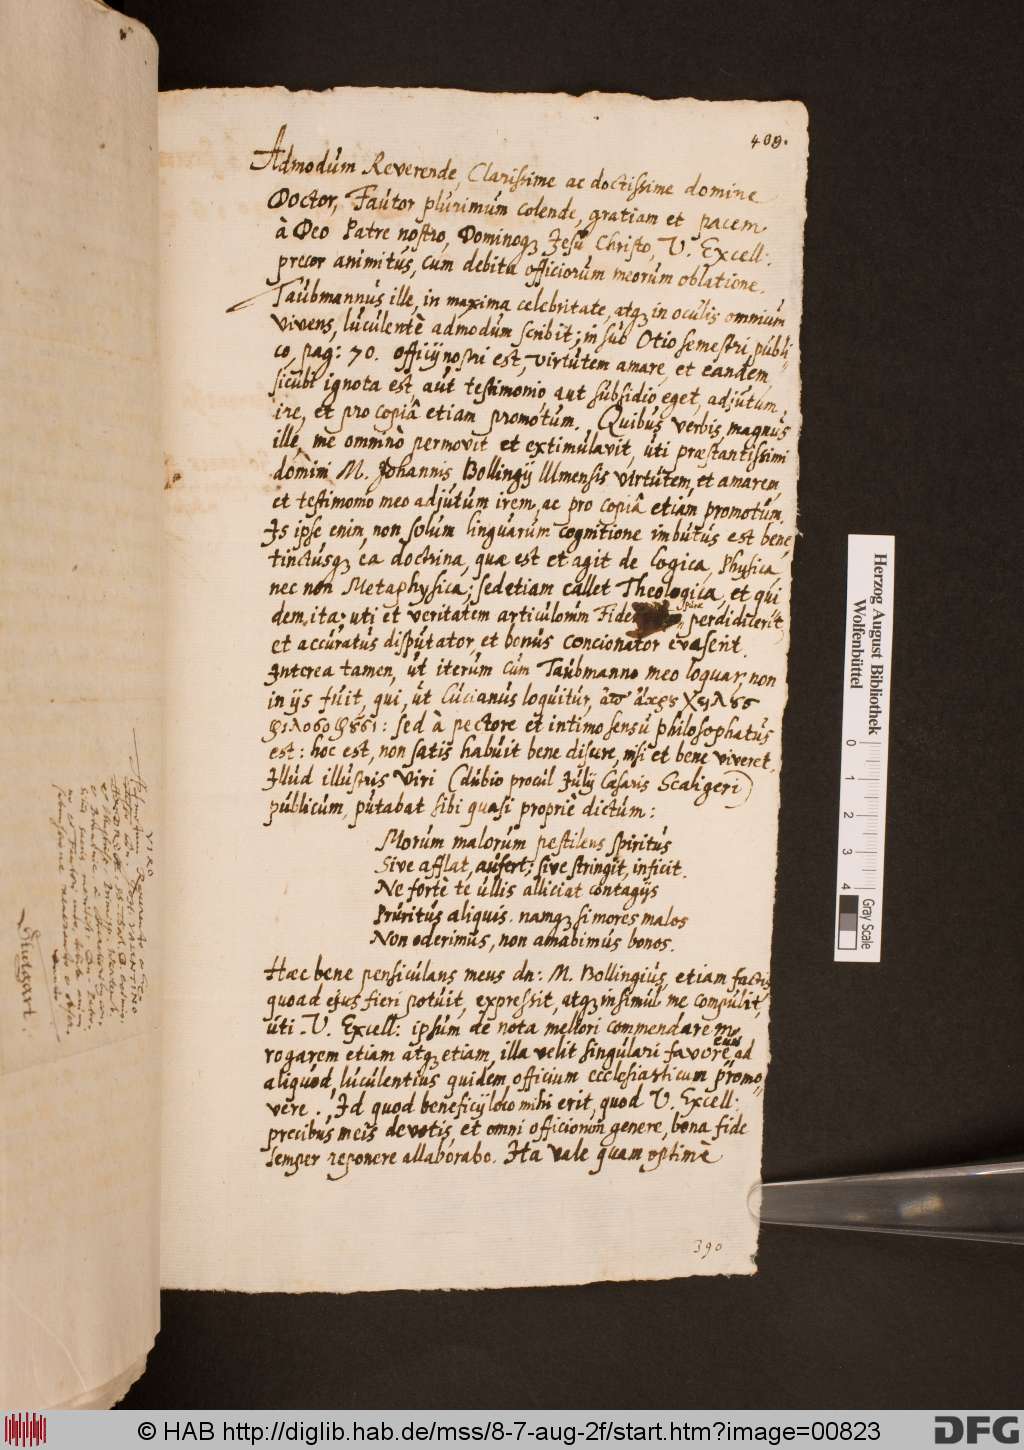 409.
Admodum Reverende, Clarissime ac doctissime domine
Doctor, Fautor plurimum colende, gratiam et pacem
à Deo Patre nostro, Dominoq; Jesu Christo, V. Excell:
precor animitus, cum debita officiorum meorum oblatione.
Taubmannus ille, in maxima celebritate, atq; in oculis omnium
vivens, luculentè admodum scribit; in suo Otio semestri publi-
co, pag: 70. officij nostri est, virtutem amare, et eandem,
sicubi ignota est, aut testimonio, aut subsidio eget, adjutum
ire, et pro copiâ etiam promotum. Quibus verbis, magnus
ille, me omninò permovit et extimulavit, uti præstantissimi
domini M. Johannis Bollingij Ulmensis virtutem, et amarem,
et testimonio meo adjutum irem, ac pro copiâ etiam promotum.
Is ipse enim, non solum linguarum cognitione imbutus est bene,
tinctusq; ea doctrina, quæ est et agit de Logica, Physica
nec non Metaphysica; sed etiam callet Theologica, et qui
dem, ita: uti et veritatem articulorum Fidei perdidicerit,
et accuratus disputator, et bonus concionator evaserit.
Interea tamen, ut iterum cum Taubmanno meo loquar, non
in ijs fuit, qui, ut Lucianus loquitur,
sed à pectore et intimo sensu philosophatus
est: hoc est, non satis habuit bene disere, nisi et bene viveret.
Illud illustris viri (dubio procul Julij Cæsaris Scaligeri)
publicum, putabat sibi quasi propriè dictum:
Morum malorum pestilens spiritus
Sive afflat, aufert; sive stringit, inficit.
Ne fortè te ullis alliciat contagijs
Pruritus aliquis. namq; si mores malos
Non oderimus, non amabimus bonos.
Hæc bene pensiculans meus dn: M. Bollingius, etiam factis
quoad ejus fieri potuit, expressit, atq; insimul me compulit,
uti V. Excell: ipsum de nota meliori commendarem
rogarem etiam atq; etiam, illa velit singulari favore eum ad
aliquod, luculentius quidem officium ecclesiasticum promo-
vere. Id quod beneficij loco mihi erit, quod V. Excell:
precibus meis devotis, et omni officiorum genere, bona fide
semper reponere allaborabo. Ita vale quam optimè
390
VIRO
Stutgart.
Herzog August Bibliothek
Wolfenbüttel
0 1 2 3 4
Gray Scale
© HAB http://diglib.hab.de/mss/8-7-aug-2f/start.htm?image=00823
DFG